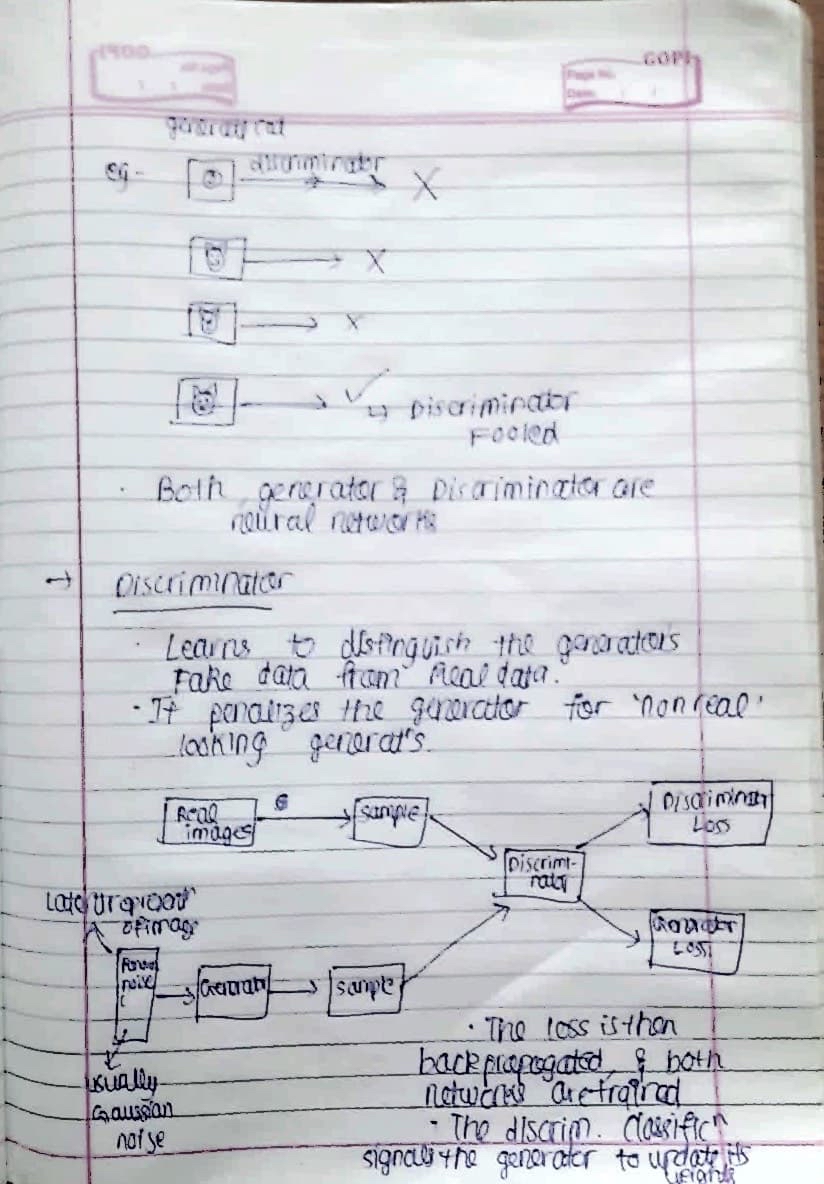 GOPI
Page No.
Date
generated cat
eg - discriminator X
X
X
✓
↳ Discriminator
Fooled
· Both generator & Discriminator are
neural networks
→ Discriminator
· Learns to distinguish the generators
Fake data from Real data.
· It penalizes the generator for 'non real'
looking generat's.
Real
images
Sample
Discriminatr
Loss
Discrimi-
nator
of image
Generator
Loss
noise
Generator
sample
usually
Gaussian
noise
· The loss is then
backpropogated, & both
networks are trained
· The discrim. classificn
signals the generator to update its
weights